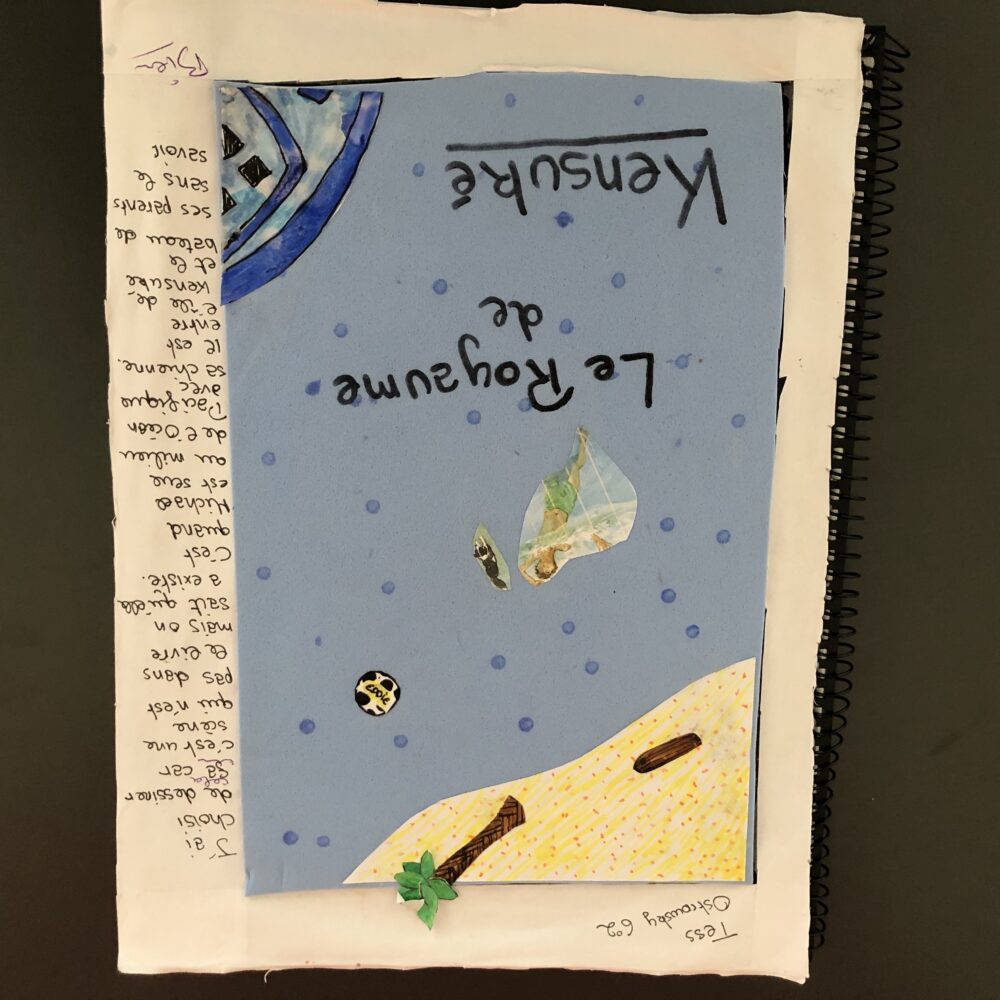 Tess
Ostrowsky 6°2
Le Royaume
de
Kensuké
J'ai
choisi
de dessiner
cela
ça car
c'est une
scène
qui n'est
pas dans
le livre
mais on
sait qu'elle
a existé.
C'est
quand
Michael
est seul
au milieu
de l'Océan
Pacifique
avec
sa chienne.
Il est
entre
l'île de
Kensuké
et le
bateau de
ses parents
sans le
savoir
Bien